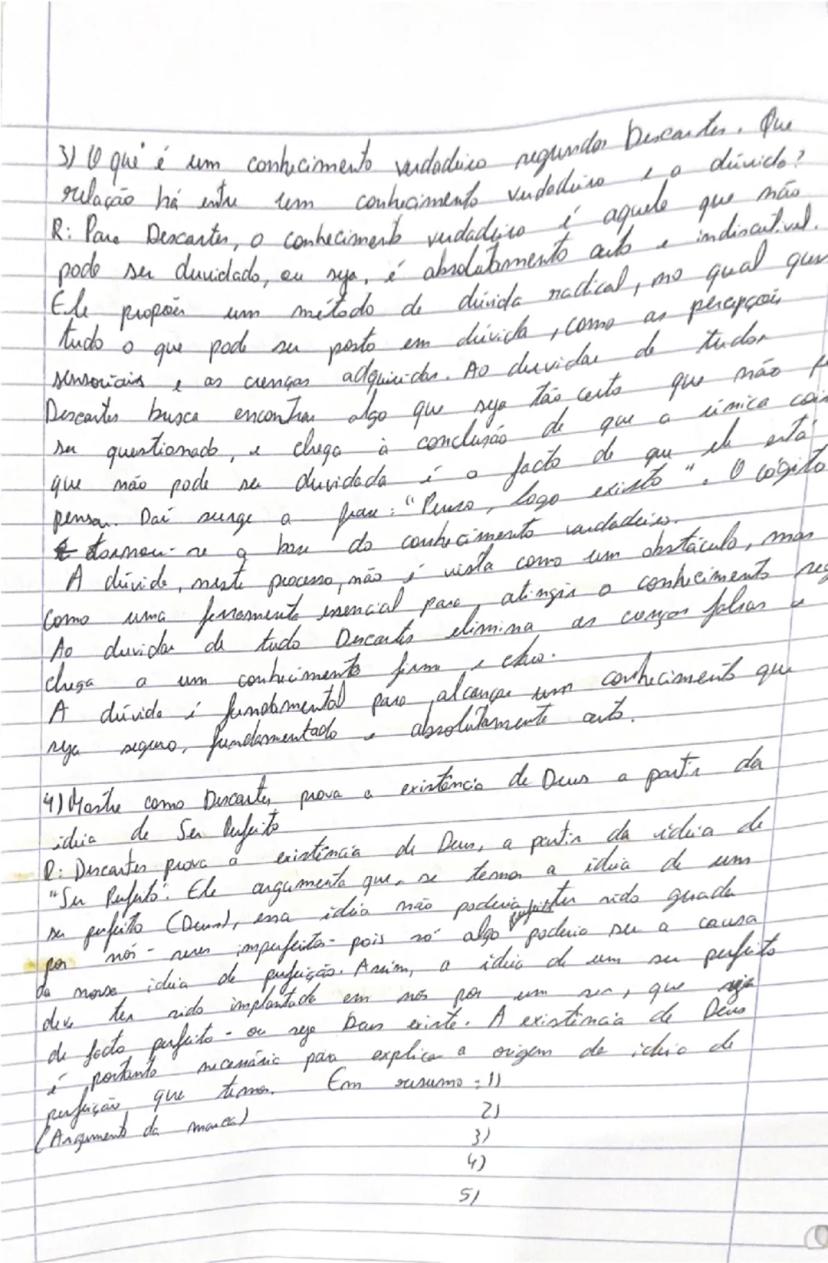 3) O que é um conhecimento verdadeiro segundo Descartes. Que
relação há entre um conhecimento verdadeiro e a dúvida?
R: Para Descartes, o conhecimento verdadeiro é aquele que não
pode ser duvidado, ou seja, é absolutamente certo e indiscutível.
Ele propões um método de dúvida radical, no qual
tudo o que pode ser posto em dúvida, como as percepções
sensoriais e as crenças adquiridas. Ao duvidar de tudo
Descartes busca encontrar algo que seja tão certo que não
ser questionado, e chega à conclusão de que a única
que não pode ser duvidada é o facto de que ele está
pensar. Daí surge a frase: "Penso, logo existo". O cógito
tornou-se a base do conhecimento verdadeiro.
A dúvida, neste processo, não é vista como um obstáculo, mas
como uma ferramenta essencial para atingir o conhecimento
Ao duvidar de tudo Descartes elimina as crenças falsas e
chega a um conhecimento firme e claro.
A dúvida é fundamental para alcançar um conhecimento que
seja seguro, fundamentado e absolutamente certo.
4) Mostre como Descartes prova a existência de Deus a partir da
ideia de Ser Perfeito
R: Descartes prova a existência de Deus, a partir da ideia de
"Ser Perfeito". Ele argumenta que, se temos a ideia de um
ser perfeito (Deus), essa ideia não poderia ter sido guada
por nós - seres imperfeitos - pois só algo perfeito poderia ser a causa
da nossa ideia de perfeição. Assim, a ideia de um ser perfeito
deve ter sido implantada em nós por um ser, que seja
de facto perfeito - ou seja Deus existe. A existência de Deus
é portanto necessária para explicar a origem da ideia de
perfeição que temos. Em resumo: 1)
(Argumento da marca) 2)
3)
4)
5)